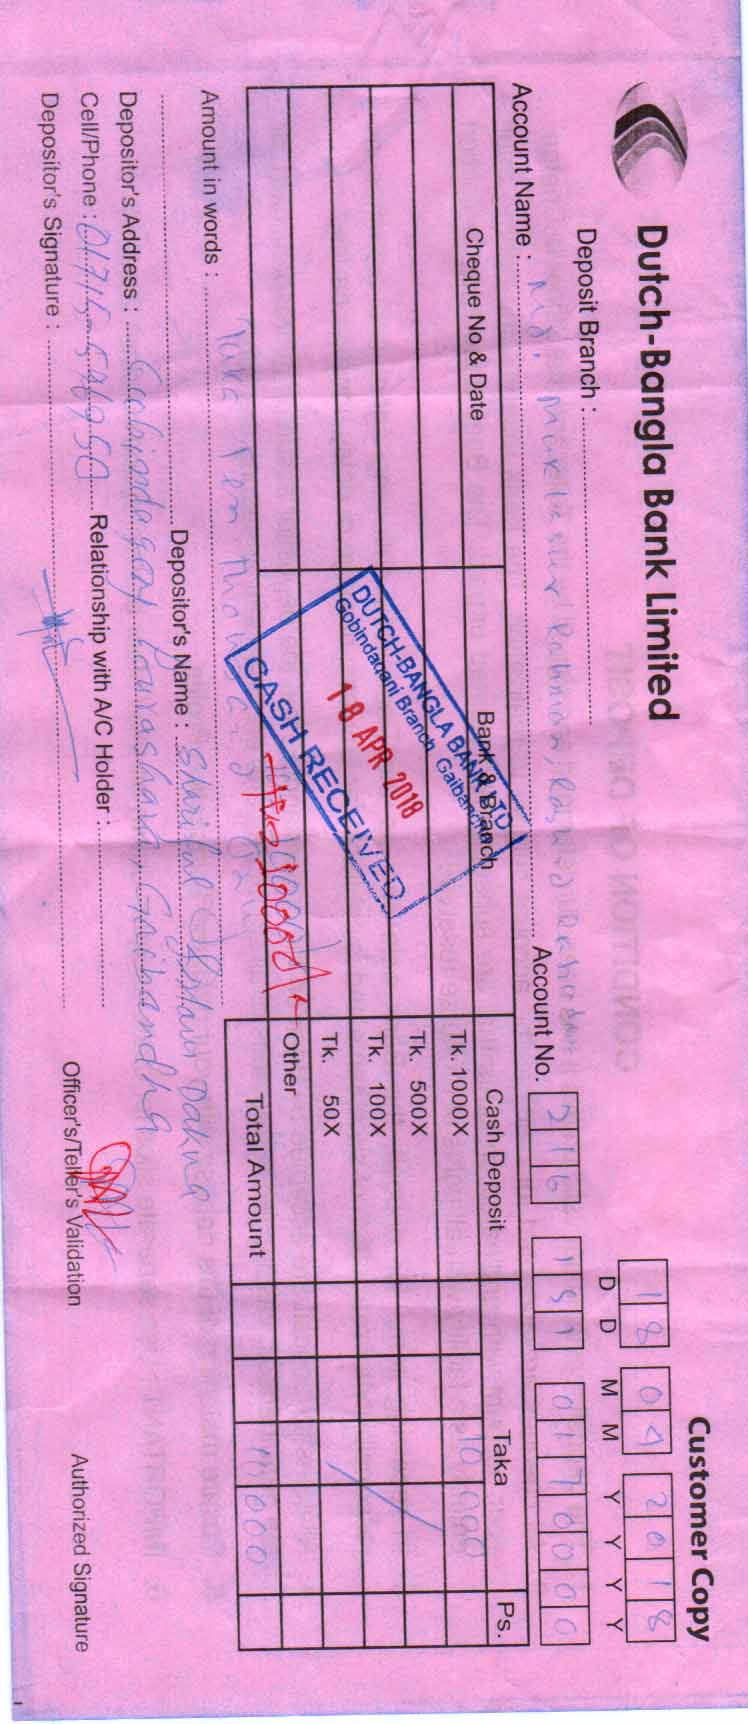 Dutch-Bangla Bank Limited
Customer Copy
Deposit Branch :
18 04 2018
D D M M Y Y Y Y
Account Name : Md. Rahman,
Account No. 216 151 0170000
Cheque No & Date Bank & Branch Cash Deposit Taka Ps.
Tk. 1000X 10 000
Tk. 500X
Tk. 100X
Tk. 50X
Other
Total Amount 10 000
DUTCH-BANGLA BANK LTD
Gobindaganj Branch Gaibandha
18 APR 2018
CASH RECEIVED
10000/-
Amount in words : Taka Ten Thousand only
Depositor's Name : Shariful Islam
Depositor's Address : Gobindagonj, Gaibandha
Cell/Phone : Relationship with A/C Holder :
Depositor's Signature :
Officer's/Teller's Validation
Authorized Signature